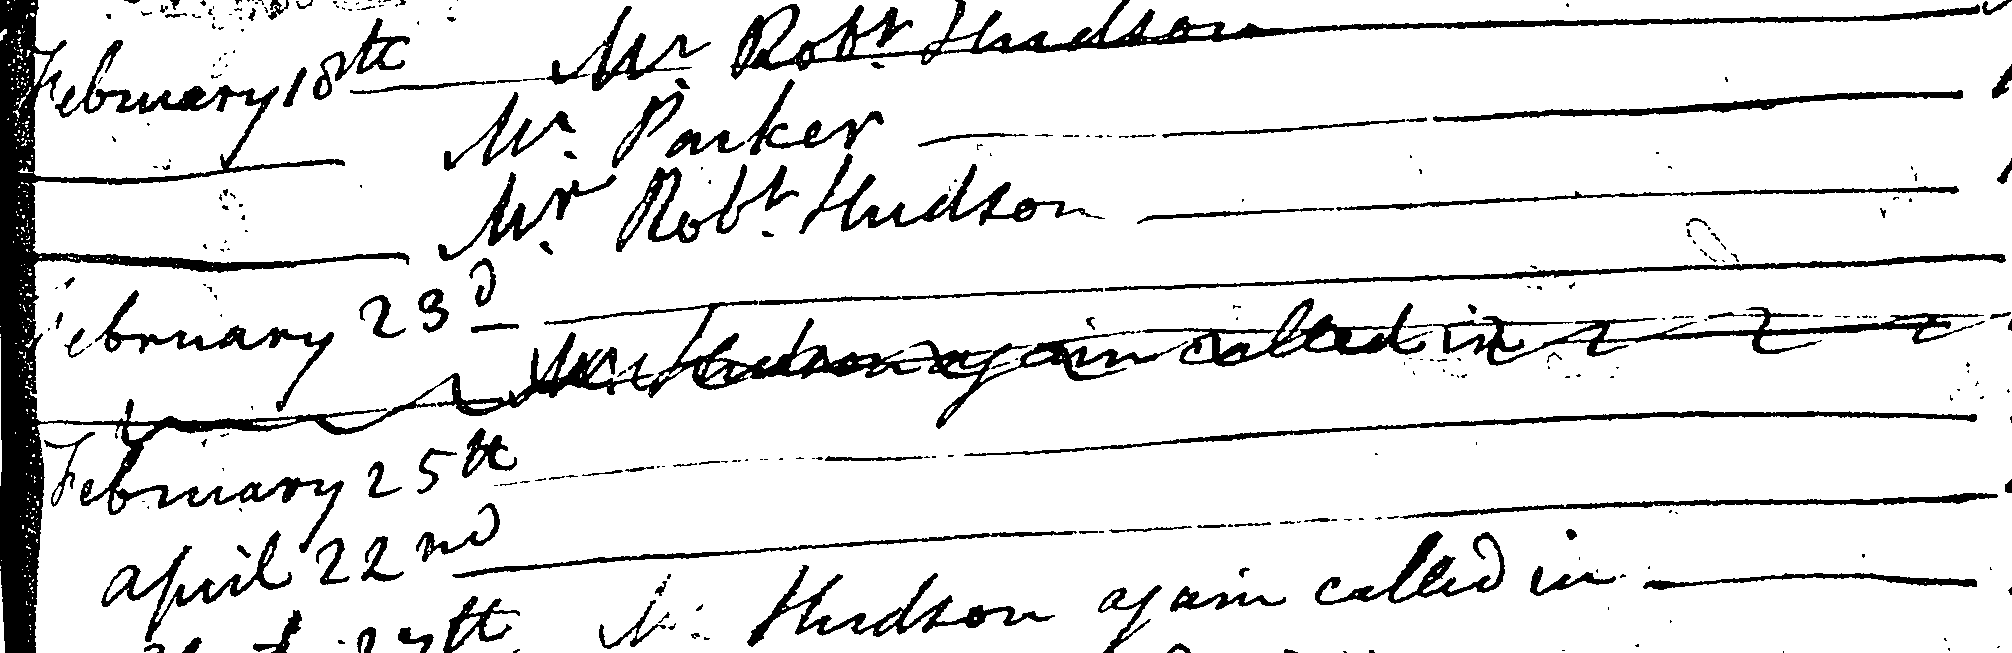 February 18th — Mr. Robt. Hudson —
— Mr. Parker —
— Mr. Robt. Hudson —
February 23d —
Mr Hudson again called in
February 25th —
april 22nd —
27th Mr. Hudson again called in —